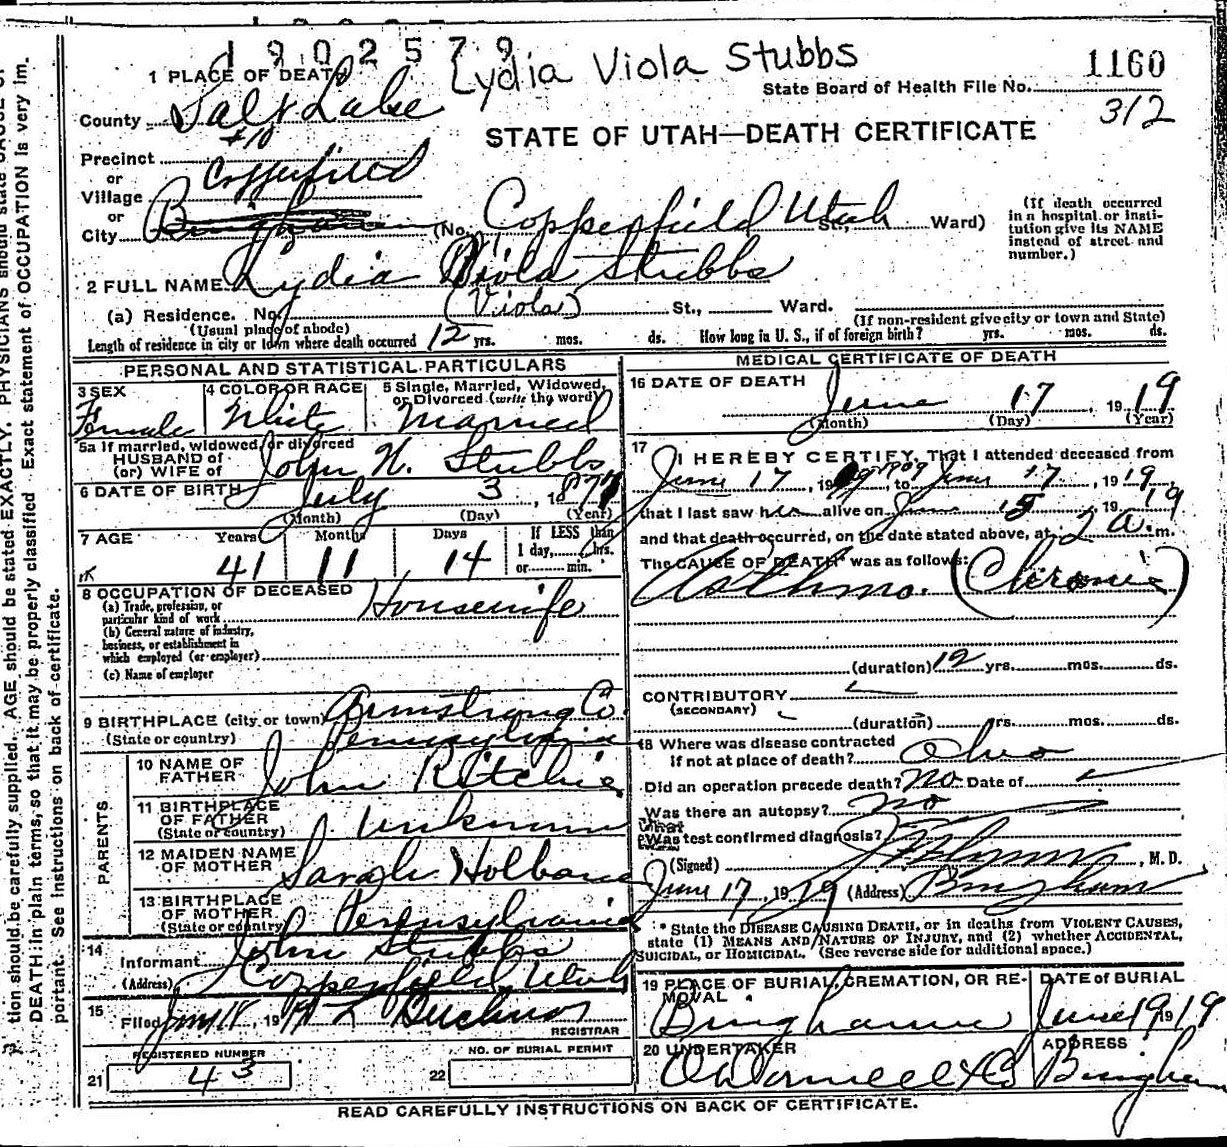 1902579
Lydia Viola Stubbs
1160
State Board of Health File No.
312
STATE OF UTAH—DEATH CERTIFICATE
1 PLACE OF DEATH
County Salt Lake
#10
Precinct
or
Village Copperfield
or
City Bingham (No. Copperfield Utah St., Ward)
(If death occurred
in a hospital or insti-
tution give its NAME
instead of street and
number.)
2 FULL NAME Lydia Viola Stubbs
(Viola)
(a) Residence. No. St., Ward.
(Usual place of abode)
(If non-resident give city or town and State)
Length of residence in city or town where death occurred 12 yrs. mos. ds. How long in U. S., if of foreign birth? yrs. mos. ds.
PERSONAL AND STATISTICAL PARTICULARS
3 SEX
Female
4 COLOR OR RACE
White
5 Single, Married, Widowed,
or Divorced (write the word)
Married
5a If married, widowed, or divorced
HUSBAND of
(or) WIFE of John N. Stubbs
6 DATE OF BIRTH July 3, 1877
(Month) (Day) (Year)
7 AGE
Years Months Days
41 11 14
If LESS than
1 day, hrs.
or min.
8 OCCUPATION OF DECEASED
(a) Trade, profession, or
particular kind of work Housewife
(b) General nature of industry,
business, or establishment in
which employed (or employer)
(c) Name of employer
9 BIRTHPLACE (city or town) Armstrong Co.
(State or country) Pennsylvania
PARENTS
10 NAME OF
FATHER John Ritchie
11 BIRTHPLACE
OF FATHER
(State or country) Unknown
12 MAIDEN NAME
OF MOTHER Sarah
13 BIRTHPLACE
OF MOTHER
(State or country) Pennsylvania
14
Informant John Stubbs
(Address) Copperfield Utah
15
Filed 18, 19
REGISTRAR
REGISTERED NUMBER
21 43
NO. OF BURIAL PERMIT
22
MEDICAL CERTIFICATE OF DEATH
16 DATE OF DEATH
June 17, 1919
(Month) (Day) (Year)
17
I HEREBY CERTIFY, That I attended deceased from
June 17, 1909, to June 17, 1919,
that I last saw her alive on June 15, 1919
and that death occurred, on the date stated above, at 2 a. m.
The CAUSE OF DEATH* was as follows:
Asthma. (Chronic)
(duration) 12 yrs. mos. ds.
CONTRIBUTORY
(SECONDARY)
(duration) yrs. mos. ds.
18 Where was disease contracted
If not at place of death? Ohio
Did an operation precede death? no Date of
Was there an autopsy? no
What
Was test confirmed diagnosis?
(Signed) , M. D.
June 17, 1919 (Address) Bingham
* State the DISEASE CAUSING DEATH, or in deaths from VIOLENT CAUSES,
state (1) MEANS AND NATURE OF INJURY, and (2) whether ACCIDENTAL,
SUICIDAL, or HOMICIDAL. (See reverse side for additional space.)
19 PLACE OF BURIAL, CREMATION, OR RE-
MOVAL
Bingham
DATE of BURIAL
June 19 1919
20 UNDERTAKER
O'Donnell & Co
ADDRESS
Bingham
READ CAREFULLY INSTRUCTIONS ON BACK OF CERTIFICATE.
tion should be carefully supplied. AGE should be stated EXACTLY. PHYSICIANS should state CAUSE OF
DEATH in plain terms, so that it may be properly classified. Exact statement of OCCUPATION is very im-
portant. See instructions on back of certificate.